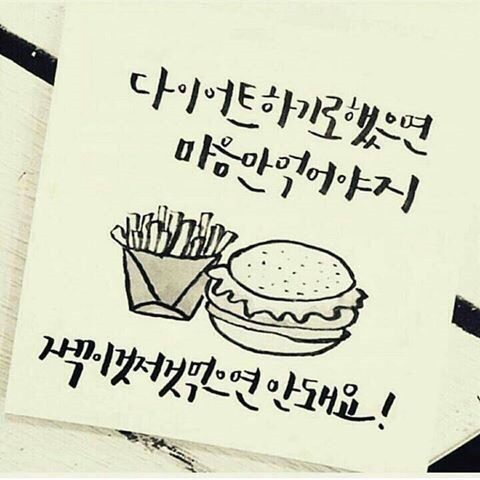 다이어트하기로했으면
마음만먹어야지
자꾸이것저것먹으면 안돼요!